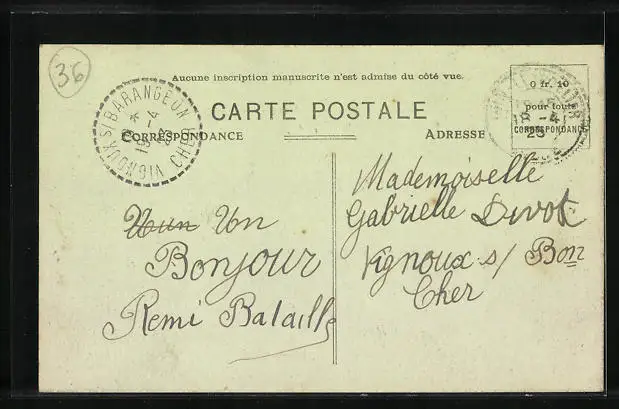 36
Aucune inscription manuscrite n'est admise du côté vue.
CARTE POSTALE
CORRESPONDANCE
ADRESSE
VIGNOUX S/BARANGEON
CHER
0 fr. 10
pour toute
CORRESPONDANCE
18 -4
25
Un
Bonjour
Remi Bataille
Mademoiselle
Gabrielle Divot
Vignoux s/ Bon
Cher